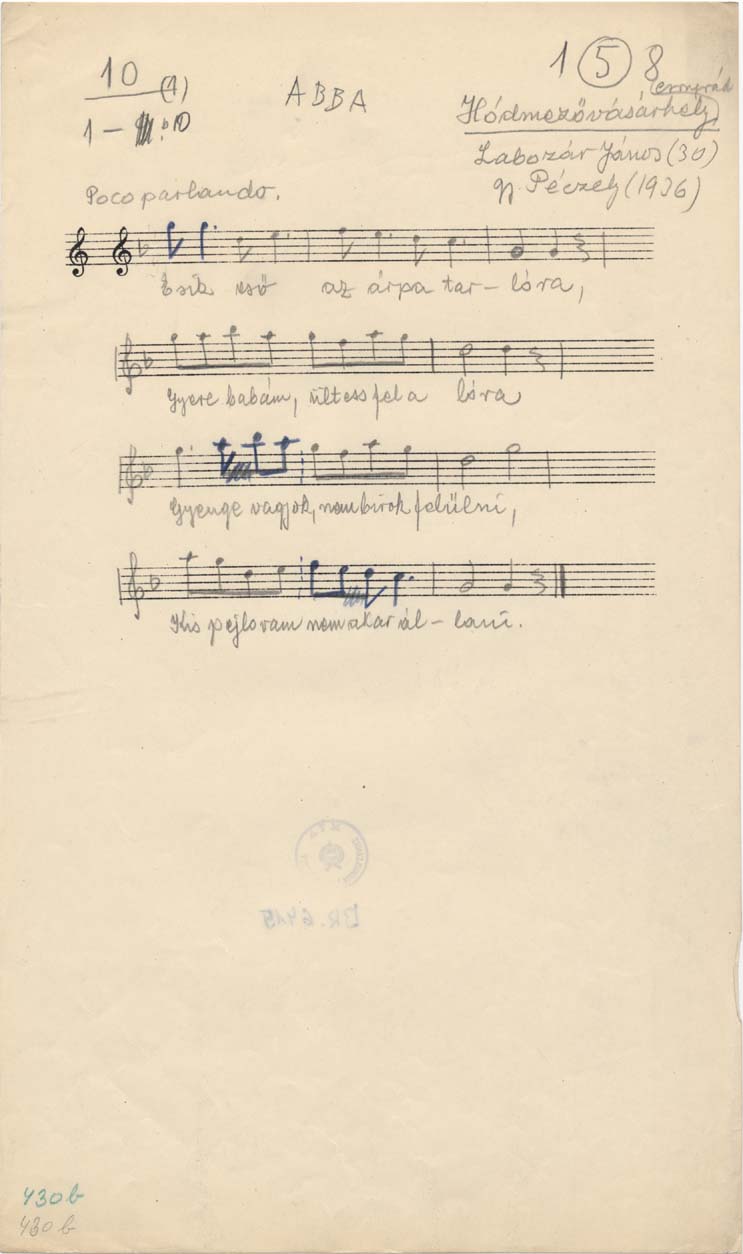 10 (1)
1 – : 10
ABBA
1 5 8
Hódmezővásárhely,
(Csongrád
Labozár János (30)
gy. Péczely (1936)
Poco parlando.
Esik eső az árpa tar–lóra,
Gyere babám, ültess fel a lóra
Gyenge vagyok, nem birok felülni,
Kis pejlovam nem akar ál–lani.
BR. 6415
430b
430b